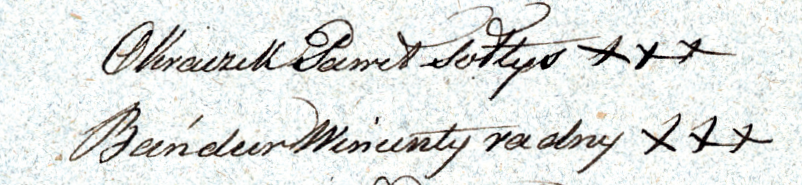 Okraczek Paweł Sołtys +++
Bańdur Wincenty radny +++